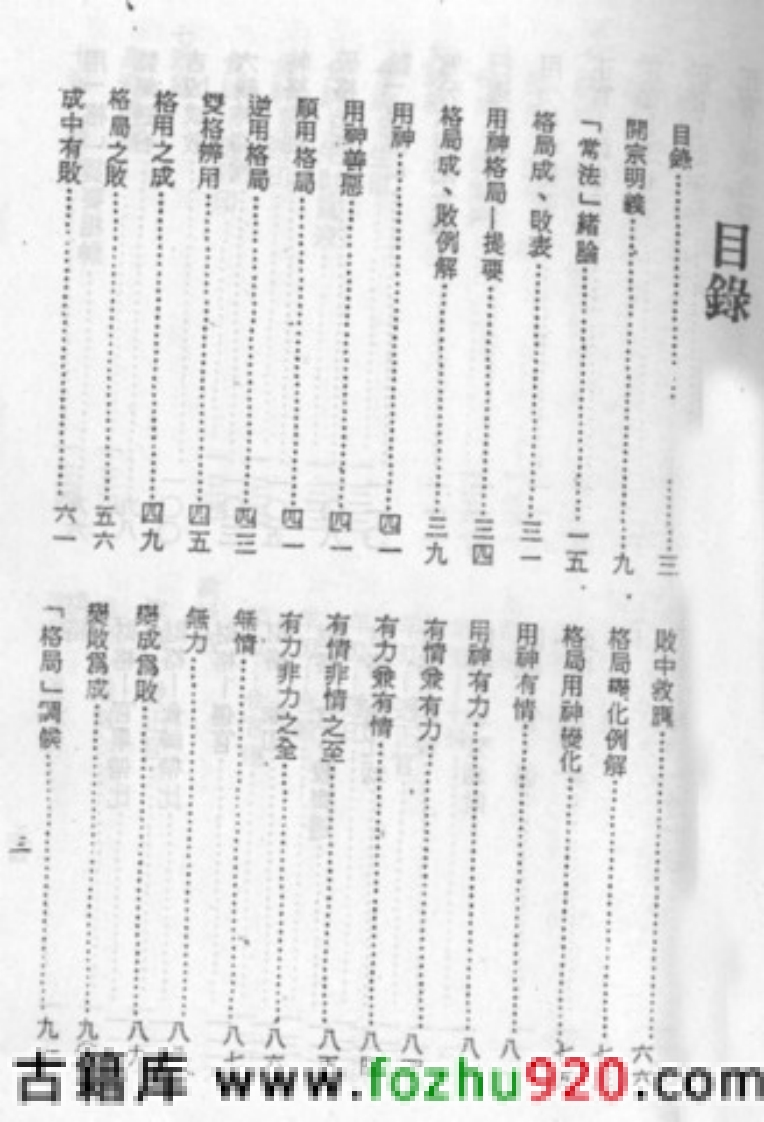 目錄
目錄……三
開宗明義……九
「常法」緒論……一五
格局成、敗表……三一
用神格局—提要……三四
格局成、敗例解……三九
用神……四一
用神善惡……四一
順用格局……四一
逆用格局……四三
雙格辨用……四五
格用之成……四九
格局之敗……五六
成中有敗……六一
敗中救護……六六
格局變化例解……七
格局用神變化……七
用神有情……八
用神有力……八
有情兼有力……八
有力兼有情……八四
有情非情之至……八五
有力非力之全……八六
無情……八七
無力……八
變成為敗……八九
變敗為成……九〇
「格局」調候……九
三
古籍库 www.fozhu920.com